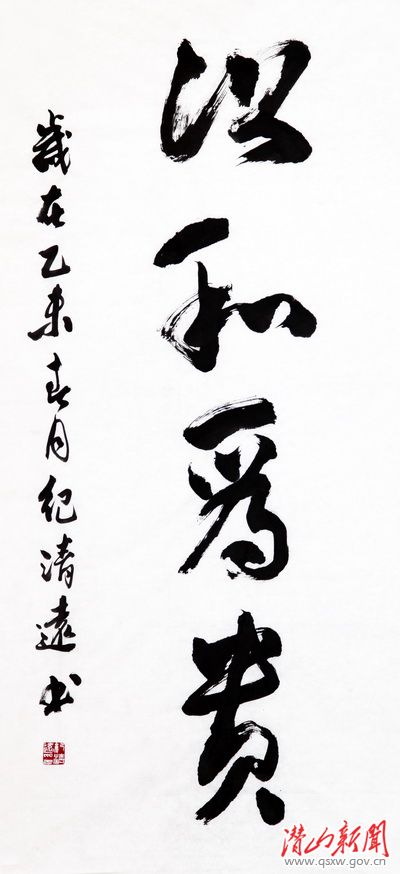 和爲貴
歲在乙未春月紀清遠书
潜山新聞
www.qsxw.gov.cn